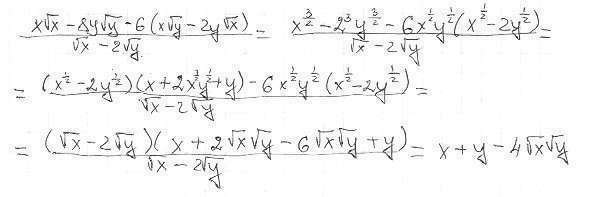 (x√x - 8y√y - 6(x√y - 2y√x))/(√x - 2√y) = (x^{3/2} - 2^3 y^{3/2} - 6x^{1/2}y^{1/2}(x^{1/2} - 2y^{1/2}))/(√x - 2√y) =
= ((x^{1/2} - 2y^{1/2})(x + 2x^{1/2}y^{1/2} + y) - 6x^{1/2}y^{1/2}(x^{1/2} - 2y^{1/2}))/(√x - 2√y) =
= ((√x - 2√y)(x + 2√x√y - 6√x√y + y))/(√x - 2√y) = x + y - 4√x√y